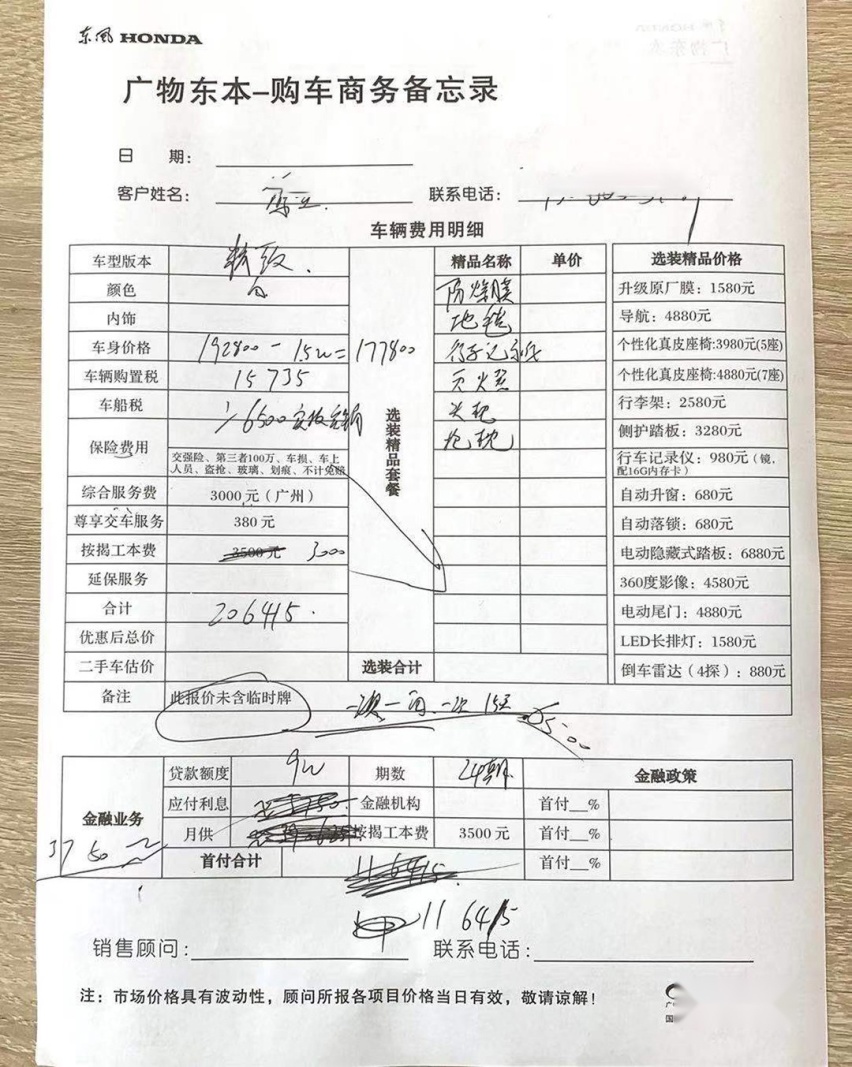 东风 HONDA
广物东本-购车商务备忘录
日 期：
客户姓名：
联系电话：
车辆费用明细
车型版本 精致. 精品名称 单价 选装精品价格
颜色 白 防爆膜 升级原厂膜：1580元
内饰 地毯 导航：4880元
车身价格 192800-1.5w=177800 行车记录仪 个性化真皮座椅:3980元(5座)
车辆购置税 15735 灭火器 个性化真皮座椅:4880元(7座)
车船税 头枕 行李架：2580元
保险费用 6500 侧护踏板：3280元
交强险、第三者100万、车损、车上
人员、盗抢、玻璃、划痕、不计免赔
行车记录仪：980元（镜，
配16G内存卡）
选装精品套餐
综合服务费 3000元（广州） 自动升窗：680元
尊享交车服务 380元 自动落锁：680元
按揭工本费 3500元 3000 电动隐藏式踏板：6880元
延保服务 360度影像：4580元
合计 206415. 电动尾门：4880元
优惠后总价 LED长排灯：1580元
二手车估价 选装合计 倒车雷达（4探）：880元
备注 此报价未含临时牌
金融业务
贷款额度 9w 期数 24期 金融政策
应付利息 金融机构 首付__%
月供 按揭工本费 3500元 首付__%
首付合计 116415 首付__%
3750
116415
销售顾问：
联系电话：
注：市场价格具有波动性，顾问所报各项目价格当日有效，敬请谅解！